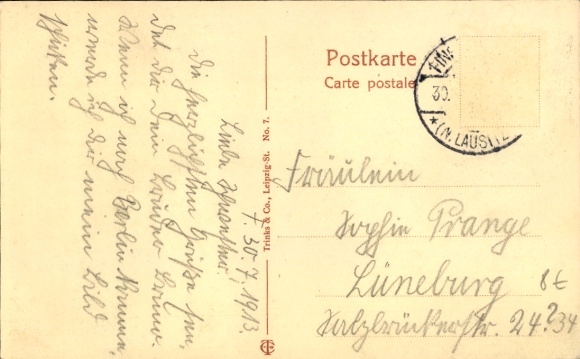 Postkarte
Carte postale
30.
*(N. LAUSITZ
Trinks & Co., Leipzig-St. No. 7.
F. 30.7.1913.
Liebe Schwester.
Die herzlichsten Grüße sen-
det dir Dein Bruder
Wenn ich nach Berlin komme
werde ich dir mein Bild
schicken.
Fräulein
Sophie Prange
Lüneburg
Salzbrückerstr. 24?34
8€